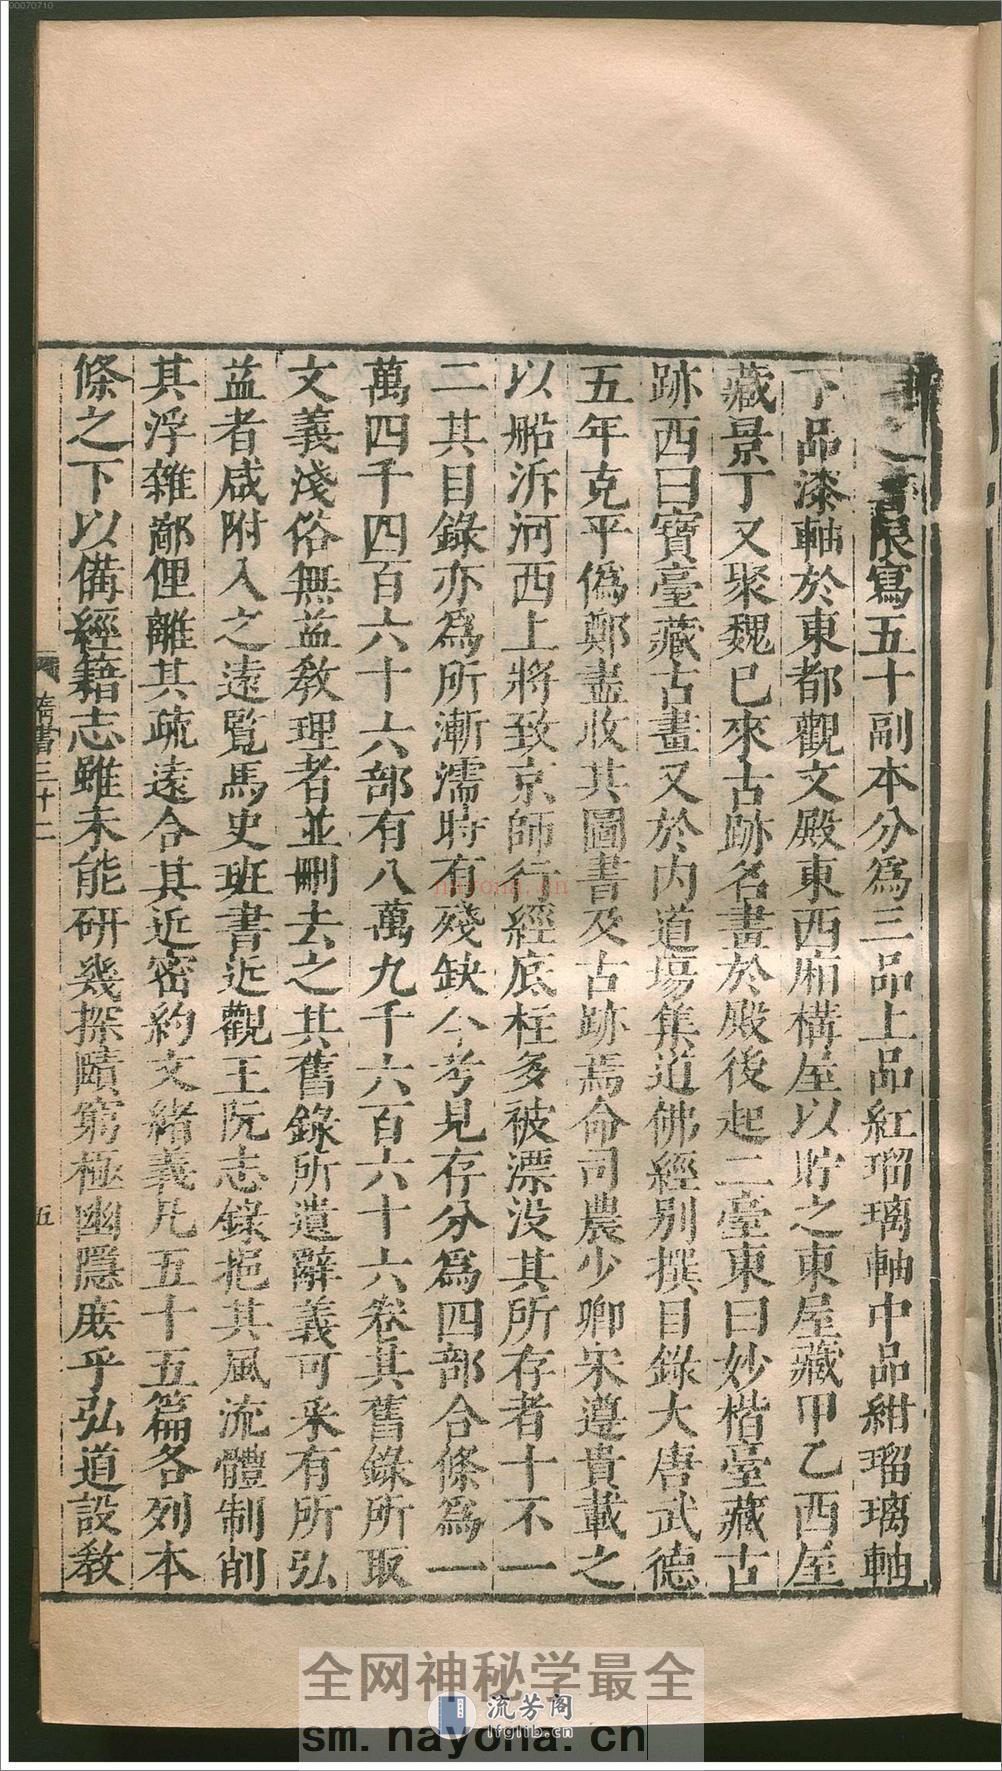 書限寫五十副本分爲三品上品紅瑠璃軸中品紺瑠璃軸
下品漆軸於東都觀文殿東西廂構屋以貯之東屋藏甲乙西屋
藏景丁又聚魏已來古跡名畫於殿後起二臺東曰妙楷臺藏古
跡西曰寶臺藏古畫又於内道場集道佛經別撰目錄大唐武德
五年克平僞鄭盡收其圖書及古跡焉命司農少卿宋遵貴載之
以船泝河西上將致京師行經底柱多被漂没其所存者十不一
二其目錄亦爲所漸濡時有殘缺今考見存分爲四部合條爲一
萬四千四百六十六部有八萬九千六百六十六卷其舊錄所取
文義淺俗無益教理者並刪去之其舊錄所遺辭義可采有所弘
益者咸附入之遠覽馬史班書近觀王阮志錄挹其風流體制削
其浮雜鄙俚離其疏遠合其近密約文緒義凡五十五篇各列本
條之下以備經籍志雖未能研幾探賾窮極幽隱庶乎弘道設教
隋書三十二
五
00070710
nayona.cn
全网神秘学最全
流芳阁
lfglib.cn
sm.nayona.cn